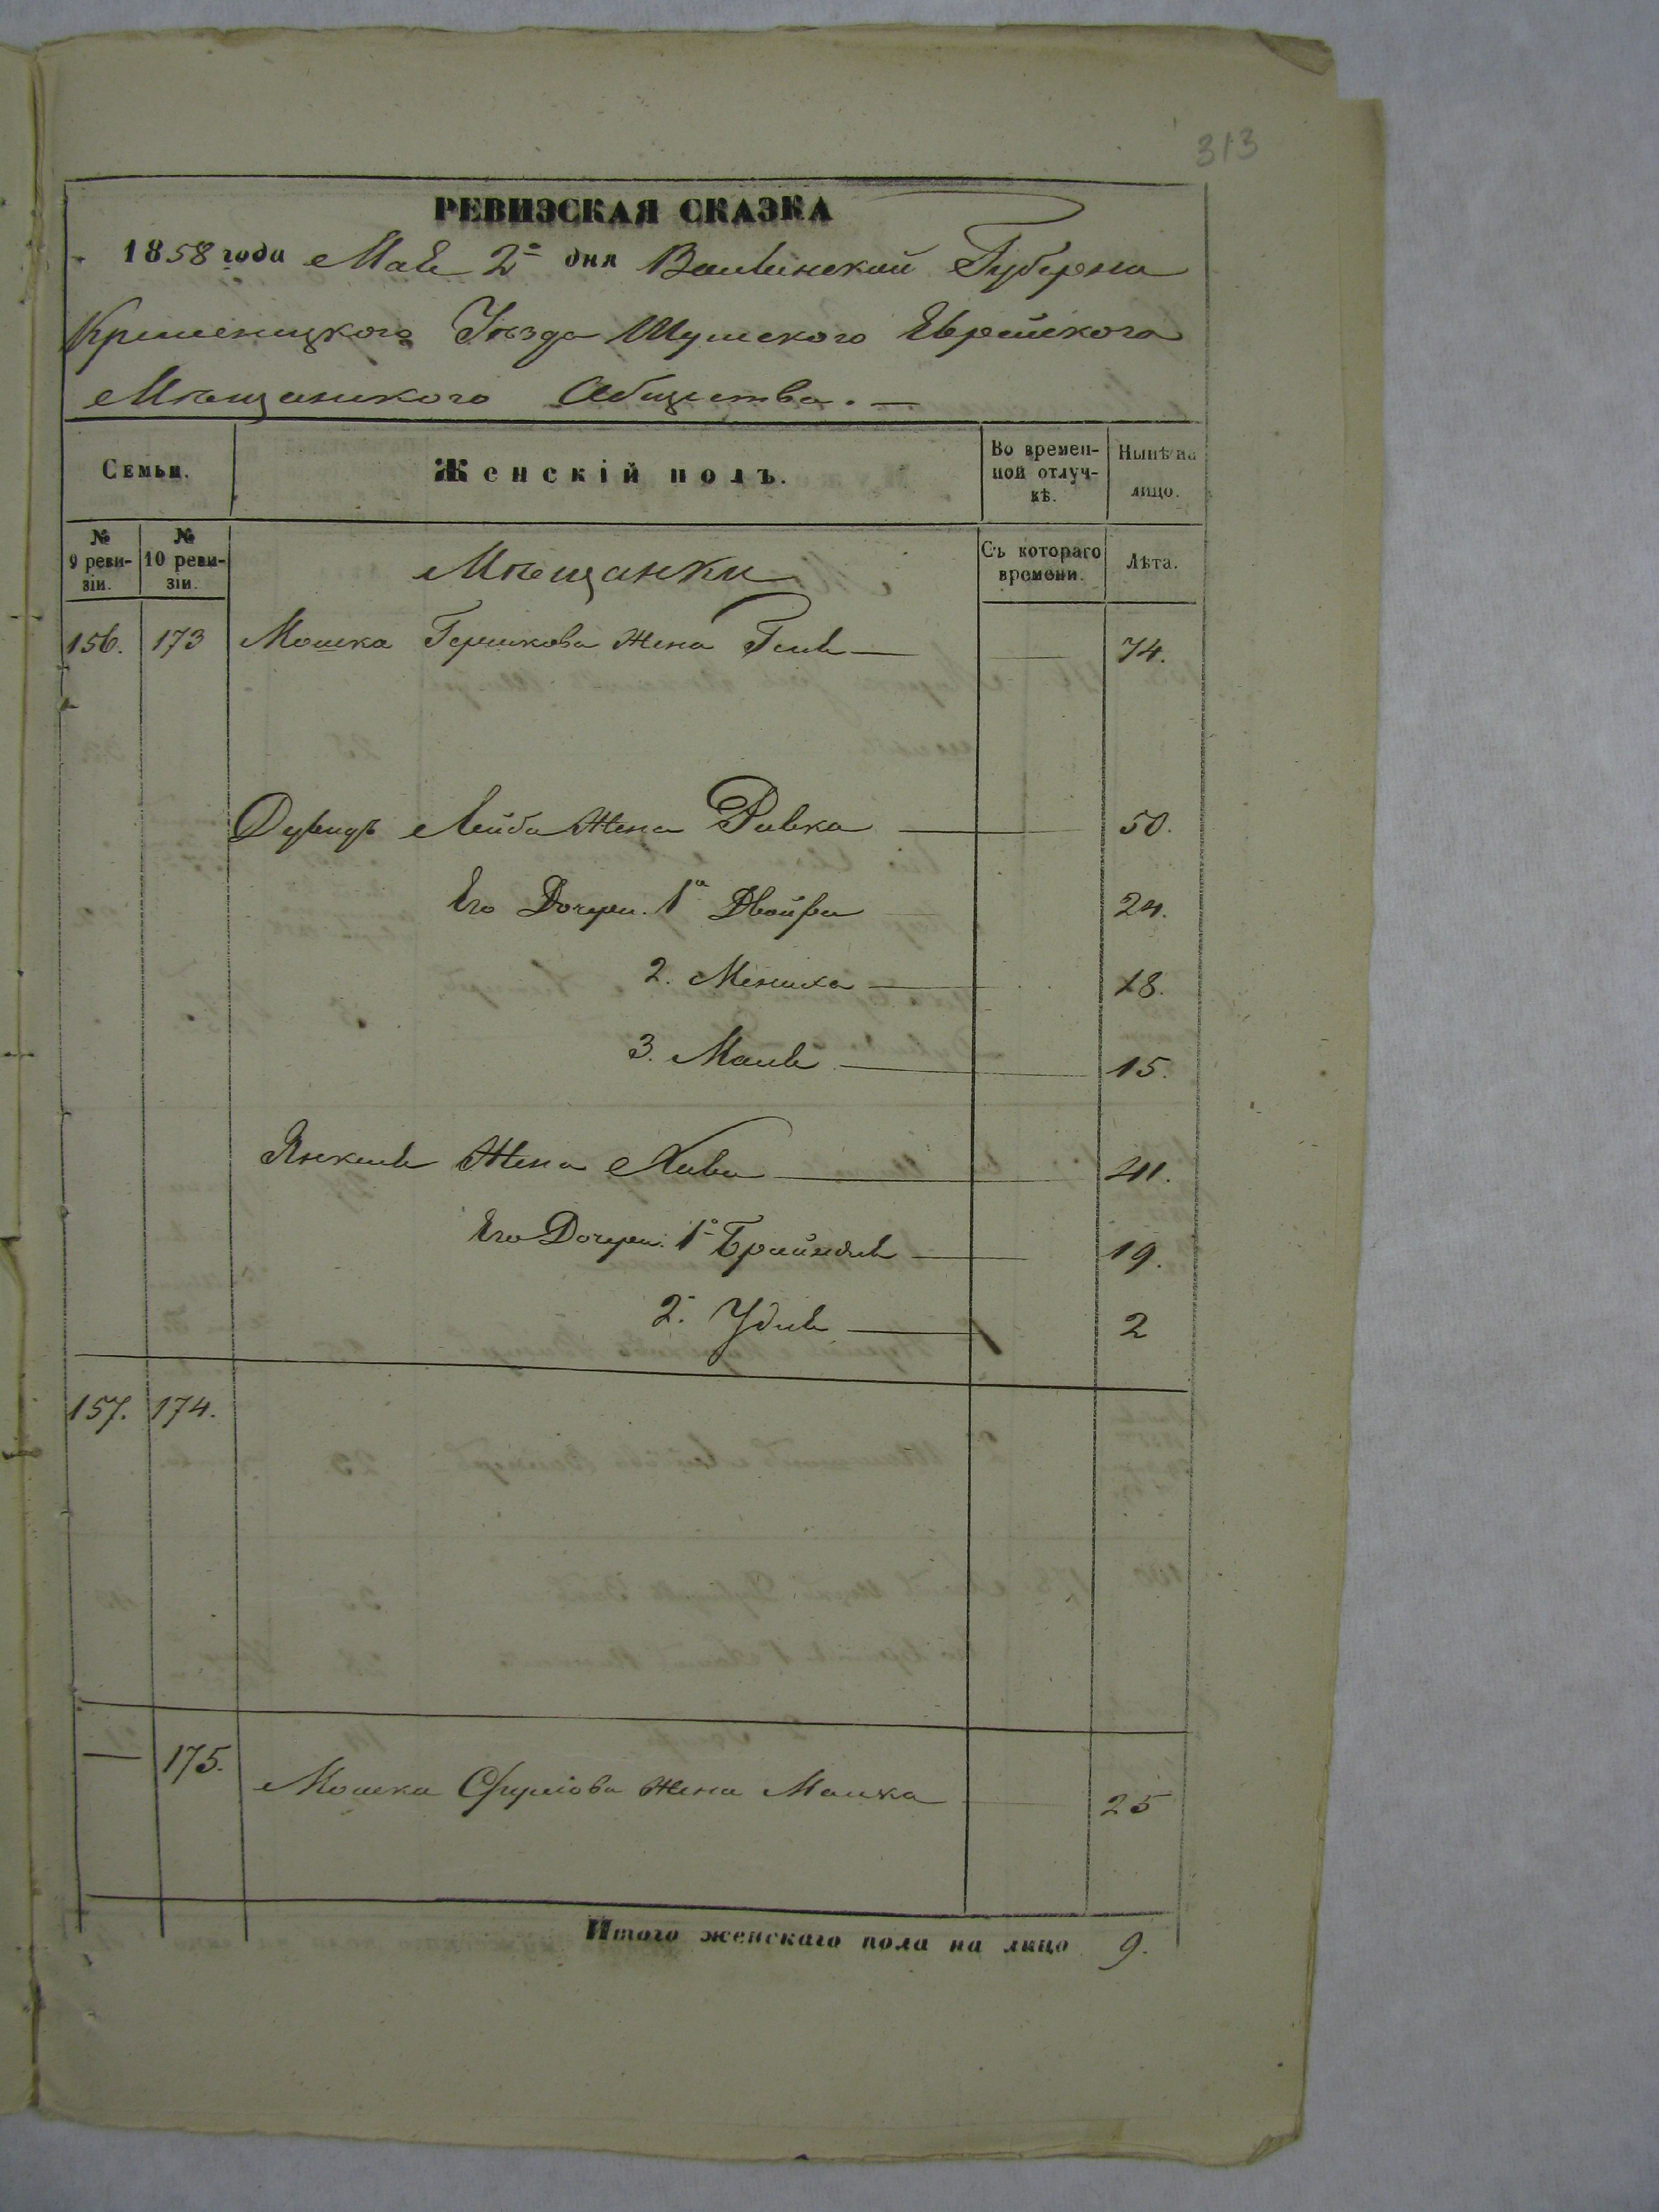 313
РЕВИЗСКАЯ СКАЗКА
1858 года Мая 2го дня Волынской Губерни
Кременецкого Уезда Шумского Еврейского
Мещанского Общества. —
Семьи.
Женскій полъ.
Во времен-
ной отлуч-
кѣ.
Нынѣ на
лицо.
№
9 реви-
зіи.
№
10 реви-
зіи.
Мещанки
Съ котораго
времени.
Лѣта.
156. 173 Мошка Гершкова Жена — 74.
Дувидъ Лейба Жена Ривка — 50.
Его Дочери. 1а Двойра — 24.
2. Мениха — 18.
3. — 15.
Янкеля Жена Хива — 41.
Его Дочери. 1а Брайндля — 19.
2. Удля — 2
157. 174.
— 175. Мошка Сруліова Жена Малка — 25
Итого женскаго пола на лицо 9.